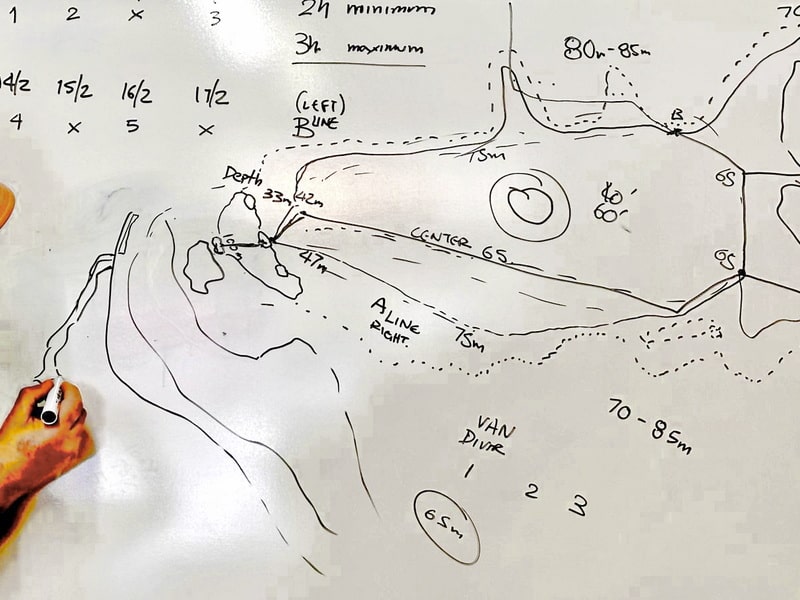 1 2 x 3
2h minimum
3h maximum
14/2 15/2 16/2 17/2
4 x 5 x
(LEFT)
B LINE
80m-85m
70
B
75m
Depth
33m 42m
65
60'
CENTER 65
47m
65
A LINE
RIGHT.
75m
70-85m
VAN
DIVER
1 2 3
65m